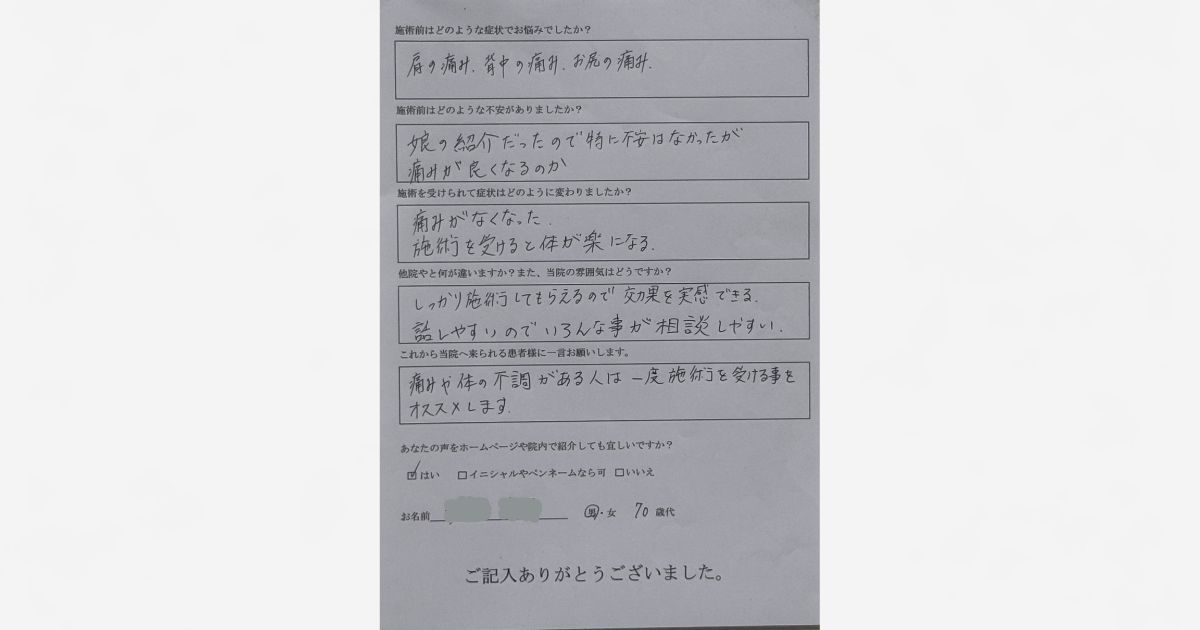 施術前はどのような症状でお悩みでしたか？
肩の痛み、背中の痛み、お尻の痛み。
施術前はどのような不安がありましたか？
娘の紹介だったので特に不安はなかったが
痛みが良くなるのか
施術を受けられて症状はどのように変わりましたか？
痛みがなくなった。
施術を受けると体が楽になる。
他院やと何が違いますか？また、当院の雰囲気はどうですか？
しっかり施術してもらえるので効果を実感できる。
話しやすいのでいろんな事が相談しやすい。
これから当院へ来られる患者様に一言お願いします。
痛みや体の不調がある人は一度施術を受ける事を
オススメします。
あなたの声をホームページや院内で紹介しても宜しいですか？
☑はい □イニシャルやペンネームなら可 □いいえ
お名前 男・女 70 歳代
ご記入ありがとうございました。